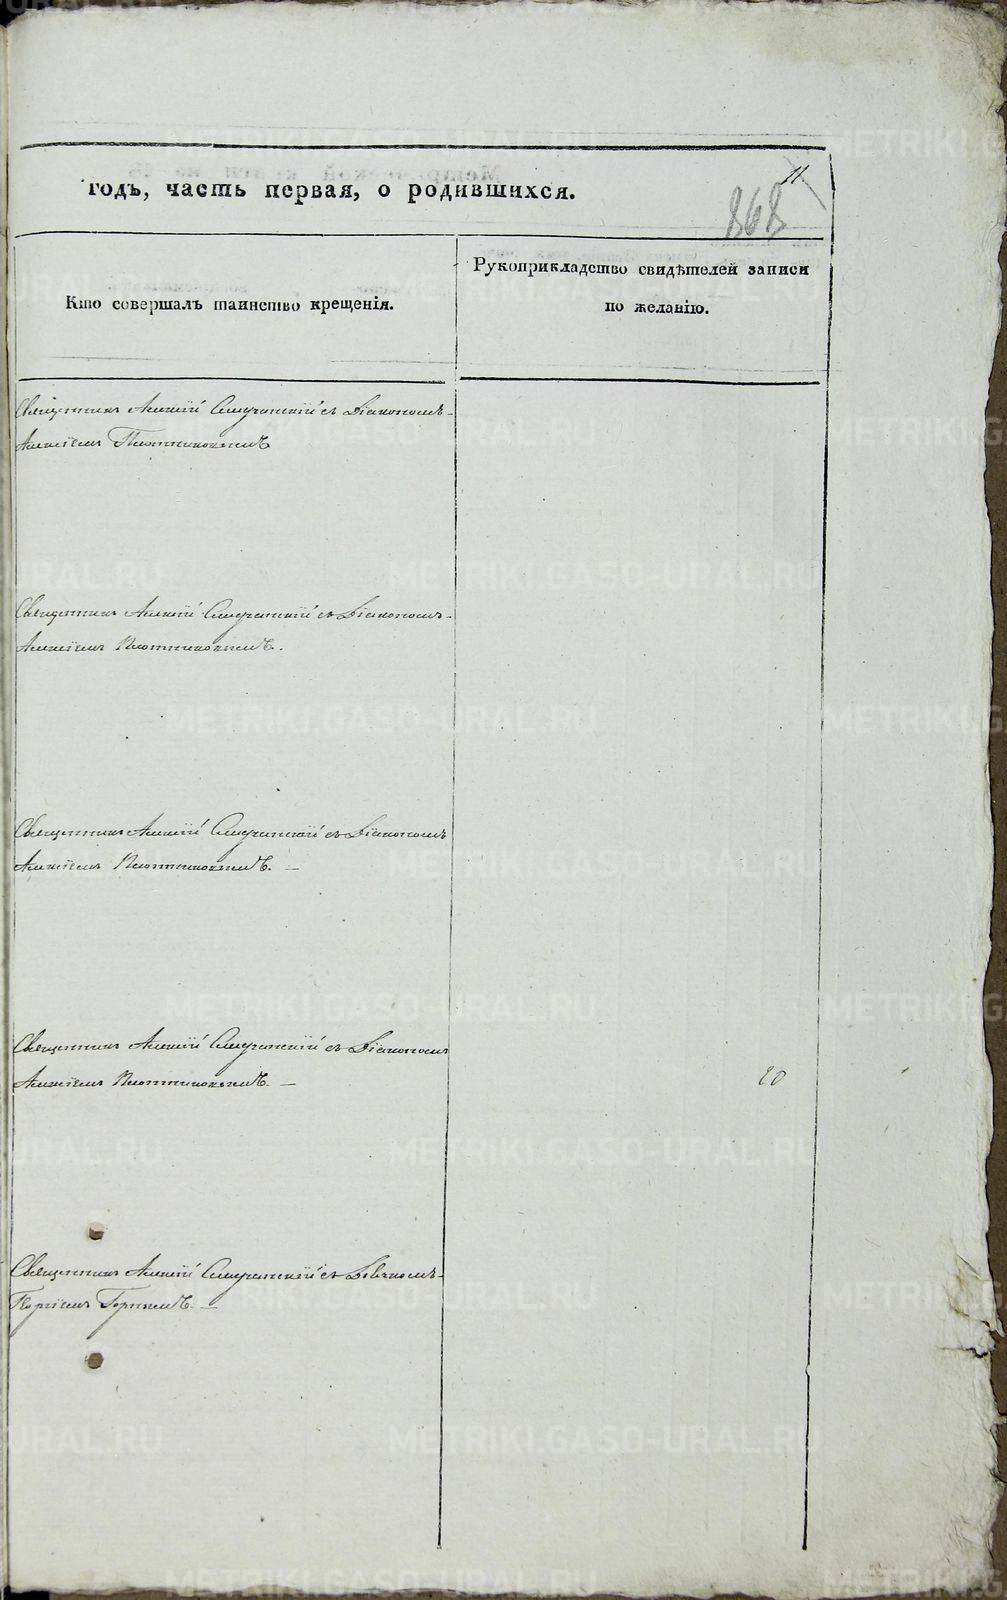 11
868
годъ, часть первая, о родившихся.
Кто совершалъ таинство крещенія.
Рукоприкладство свидѣтелей записи
по желанію.
Священникъ Алексій съ Діакономъ
Алексіемъ Плотниковымъ
Священникъ Алексій съ Діакономъ
Алексіемъ Плотниковымъ.
Священникъ Алексій съ Діакономъ
Алексіемъ Плотниковымъ. —
Священникъ Алексій съ Діакономъ
Алексіемъ Плотниковымъ. —
20
Священникъ Алексій съ
Георгіемъ —
METRIKI.GASO-URAL.RU